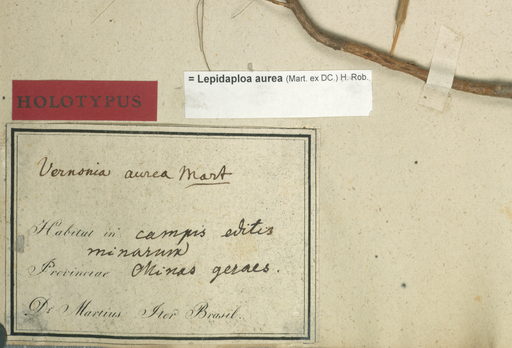 = Lepidaploa aurea (Mart. ex DC.) H. Rob.
HOLOTYPUS
Vernonia aurea Mart
Habitat in campis editis
minarum
Provinciae Minas geraes.
Dr Martius Iter Brasil.